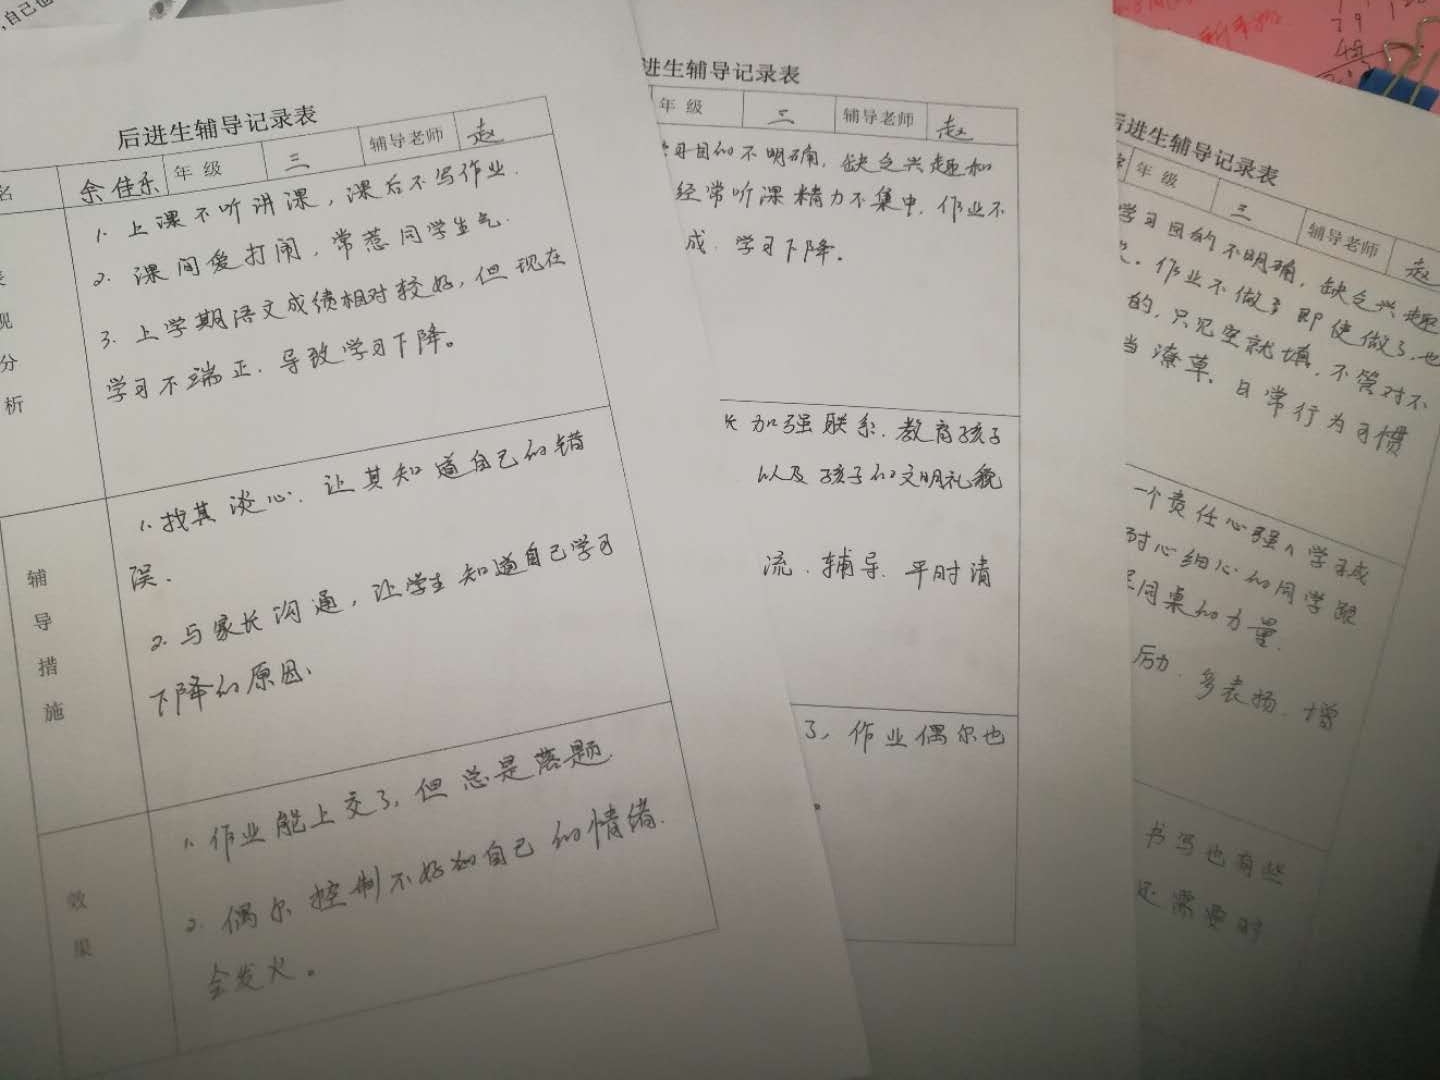 ,自己也
后进生辅导记录表
名 余佳乐 年级 三 辅导老师 赵
现
分
析
1. 上课不听讲课，课后不写作业.
2. 课间爱打闹，常惹同学生气.
3. 上学期语文成绩相对较好，但现在
学习不端正.导致学习下降。
辅
导
措
施
1.找其谈心.让其知道自己的错
误.
2.与家长沟通，让学生知道自己学习
下降的原因.
效
果
1.作业能上交了,但总是落题.
2.偶尔控制不好自己的情绪.
会发火。
进生辅导记录表
年级 三 辅导老师 赵
学习目的不明确,缺乏兴趣和
经常听课精力不集中.作业不
成.学习下降.
长加强联系.教育孩子
以及孩子的文明礼貌
流.辅导.平时请
了,作业偶尔也
。
后进生辅导记录表
年级 三 辅导老师 赵
学习目的不明确,缺乏兴趣
作业不做了即使做了.也
的,只见空就填.不管对不
当潦草.日常行为习惯
一个责任心强、学习成
耐心细心的同学跟
同桌的力量.
励.多表扬.增
书写也有些
还需要时